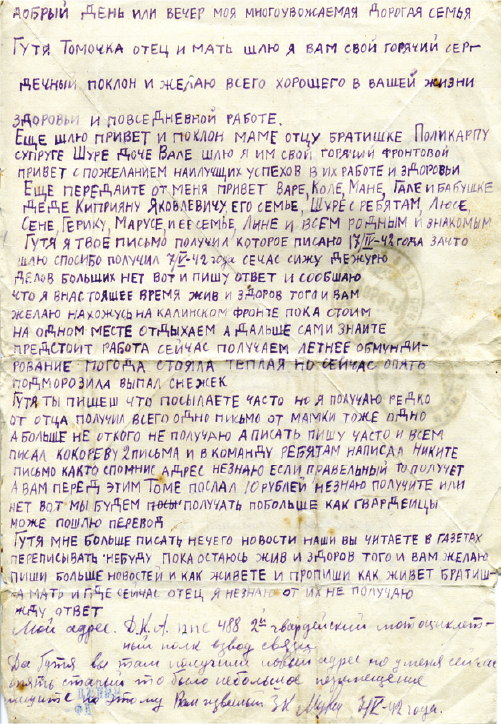 ДОБРЫЙ ДЕНЬ ИЛИ ВЕЧЕР МОЯ МНОГОУВОЖАЕМАЯ ДОРОГАЯ СЕМЬЯ
ГУТЯ ТОМОЧКА ОТЕЦ И МАТЬ ШЛЮ Я ВАМ СВОЙ ГОРЯЧИЙ СЕР-
ДЕЧНЫЙ ПОКЛОН И ЖЕЛАЮ ВСЕГО ХОРОШЕГО В ВАШЕЙ ЖИЗНИ
ЗДОРОВЬИ И ПОВСЕДНЕВНОЙ РАБОТЕ.
ЕЩЕ ШЛЮ ПРИВЕТ И ПОКЛОН МАМЕ ОТЦУ БРАТИШКЕ ПОЛИКАРПУ
СУПРУГЕ ШУРЕ ДОЧЕ ВАЛЕ ШЛЮ Я ИМ СВОЙ ГОРЯЧИЙ ФРОНТОВОЙ
ПРИВЕТ С ПОЖЕЛАНИЕМ НАИЛУЧИХ УСПЕХОВ В ИХ РАБОТЕ И ЗДОРОВЬИ
ЕЩЕ ПЕРЕДАЙТЕ ОТ МЕНЯ ПРИВЕТ ВАРЕ, КОЛЕ, МАНЕ, ГАЛЕ И БАБУШКЕ
ДЕДЕ КИПРИЯНУ ЯКОВЛЕВИЧУ, ЕГО СЕМЬЕ, ШУРЕ С РЕБЯТАМ, ЛЮСЕ,
СЕНЕ, ГЕРИКУ, МАРУСЕ, И ЕЕ СЕМЬЕ, ЛИНЕ И ВСЕМ РОДНЫМ И ЗНАКОМЫМ
ГУТЯ Я ТВОЕ ПИСЬМО ПОЛУЧИЛ КОТОРОЕ ПИСАНО 17/IV-42 ГОДА ЗА ЧТО
ШЛЮ СПОСИБО ПОЛУЧИЛ 7/V-42 года СЕЧАС СИЖУ ДЕЖУРЮ
ДЕЛОВ БОЛЬШИХ НЕТ ВОТ И ПИШУ ОТВЕТ И СООБШАЮ
ЧТО Я ВНАСТОЯШЕЕ ВРЕМЯ ЖИВ И ЗДОРОВ ТОГО И ВАМ
ЖЕЛАЮ НАХОЖУСЬ НА КАЛИНСКОМ ФРОНТЕ ПОКА СТОИМ
НА ОДНОМ МЕСТЕ ОТДЫХАЕМ А ДАЛЬШЕ САМИ ЗНАЙТЕ
ПРЕДСТОИТ РАБОТА СЕЙЧАС ПОЛУЧАЕМ ЛЕТНЕЕ ОБМУНДИ-
РОВАНИЕ ПОГОДА СТОЯЛА ТЕПЛАЯ НО СЕЙЧАС ОПЯТЬ
ПОДМОРОЗИЛА ВЫПАЛ СНЕЖЕК
ГУТЯ ТЫ ПИШЕШ ЧТО ПОСЫЛАЕТЕ ЧАСТО НО Я ПОЛУЧАЮ РЕДКО
ОТ ОТЦА ПОЛУЧИЛ ВСЕГО ОДНО ПИСЬМО ОТ МАМКИ ТОЖЕ ОДНО
А БОЛЬШЕ НЕ ОТКОГО НЕ ПОЛУЧАЮ А ПИСАТЬ ПИШУ ЧАСТО И ВСЕМ
ПИСАЛ КОКОРЕВУ 2 ПИСЬМА И В КОМАНДУ РЕБЯТАМ НАПИСАЛ НИКИТЕ
ПИСЬМО КАКТО СПОМНИС АДРЕС НЕЗНАЮ ЕСЛИ ПРАВЕЛЬНЫЙ ТО ПОЛУЧЕТ
А ВАМ ПЕРЕД ЭТИМ ТОМЕ ПОСЛАЛ 10 РУБЛЕЙ НЕЗНАЮ ПОЛУЧИТЕ ИЛИ
НЕТ ВОТ МЫ БУДЕМ ПОЛУЧАТЬ ПОБОЛЬШЕ КАК ГВАРДЕЙЦЫ
МОЖЕ ПОШЛЮ ПЕРЕВОД
ГУТЯ МНЕ БОЛЬШЕ ПИСАТЬ НЕЧЕГО НОВОСТИ НАШИ ВЫ ЧИТАЕТЕ В ГАЗЕТАХ
ПЕРЕПИСЫВАТЬ НЕБУДУ ПОКА ОСТАЮСЬ ЖИВ И ЗДОРОВ ТОГО И ВАМ ЖЕЛАЮ
ПИШИ БОЛЬШЕ НОВОСТЕЙ И КАК ЖИВЕТЕ И ПРОПИШИ КАК ЖИВЕТ БРАТИШ-
КА МАТЬ И ГДЕ СЕЙЧАС ОТЕЦ Я НЕЗНАЮ ОТ ИХ НЕ ПОЛУЧАЮ
ЖДУ ОТВЕТ
Мой адрес. Д.К.А. ППС 488 2ой гвардейский мотоциклет-
ный полк взвод связи
Да Гутя вы там получили новый адрес но у меня сейчас
опять старый то было небольшое перемещение
пишите по этому Вам известный 7/V-42 года.